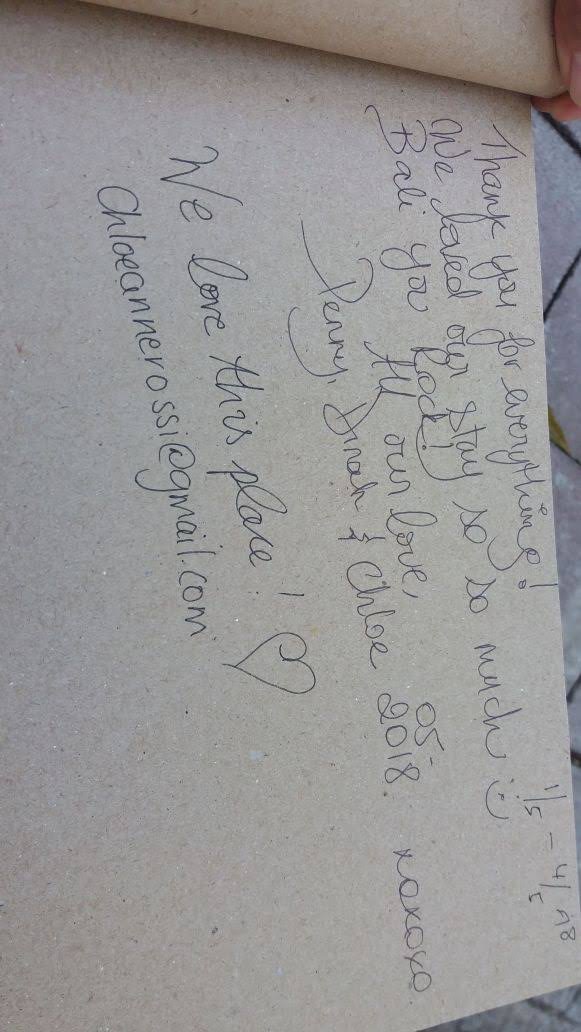 1/5 – 4/5 18
Thank you for everything!
We loved our stay so so much :)
Bali you Rock!
All our love, 05-
Penny, Dinah & Chloe 2018 xoxoxo
We love this place! ♡
Chloeannerossi@gmail.com